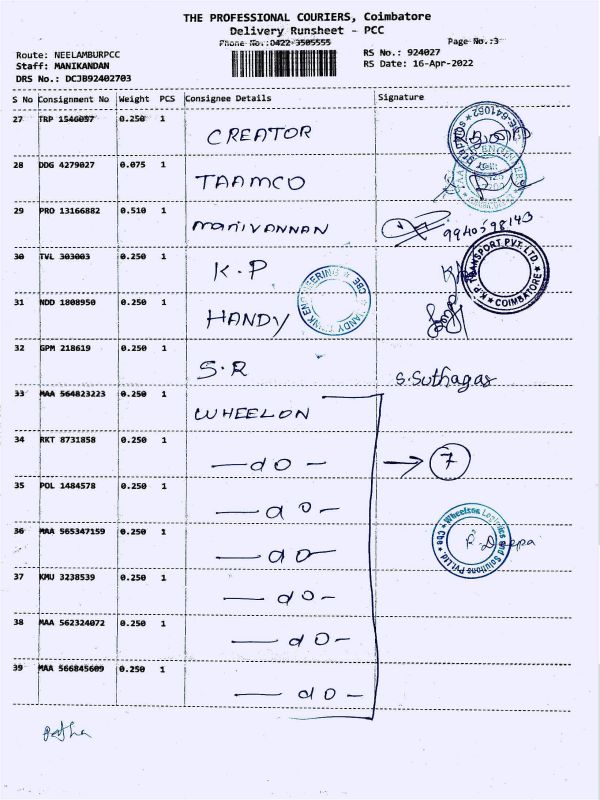 THE PROFESSIONAL COURIERS, Coimbatore
Delivery Runsheet - PCC
Phone No.:0422-3505555 Page No.:3
Route: NEELAMBURPCC RS No.: 924027
Staff: MANIKANDAN RS Date: 16-Apr-2022
DRS No.: DCJB92402703
S No Consignment No Weight PCS Consignee Details Signature
27 TRP 1546097 0.250 1 CREATOR
28 DDG 4279027 0.075 1 TAAMCO
29 PRO 13166882 0.510 1 MANIVANNAN 9940598143
30 TVL 303003 0.250 1 K.P
K.P. TRANSPORT PVT. LTD. COIMBATORE
31 NDD 1808950 0.250 1 HANDY
32 GPM 218619 0.250 1 S.R S.Suthagar
33 MAA 564823223 0.250 1 WHEELON
34 RKT 8731858 0.250 1 — do — → 7
35 POL 1484578 0.250 1 — do —
36 MAA 565347159 0.250 1 — do — R. Deepa
Wheelson Logistics and Solutions Pvt.Ltd. Cbe
37 KMU 3238539 0.250 1 — do —
38 MAA 562324072 0.250 1 — do —
39 MAA 566845609 0.250 1 — do —